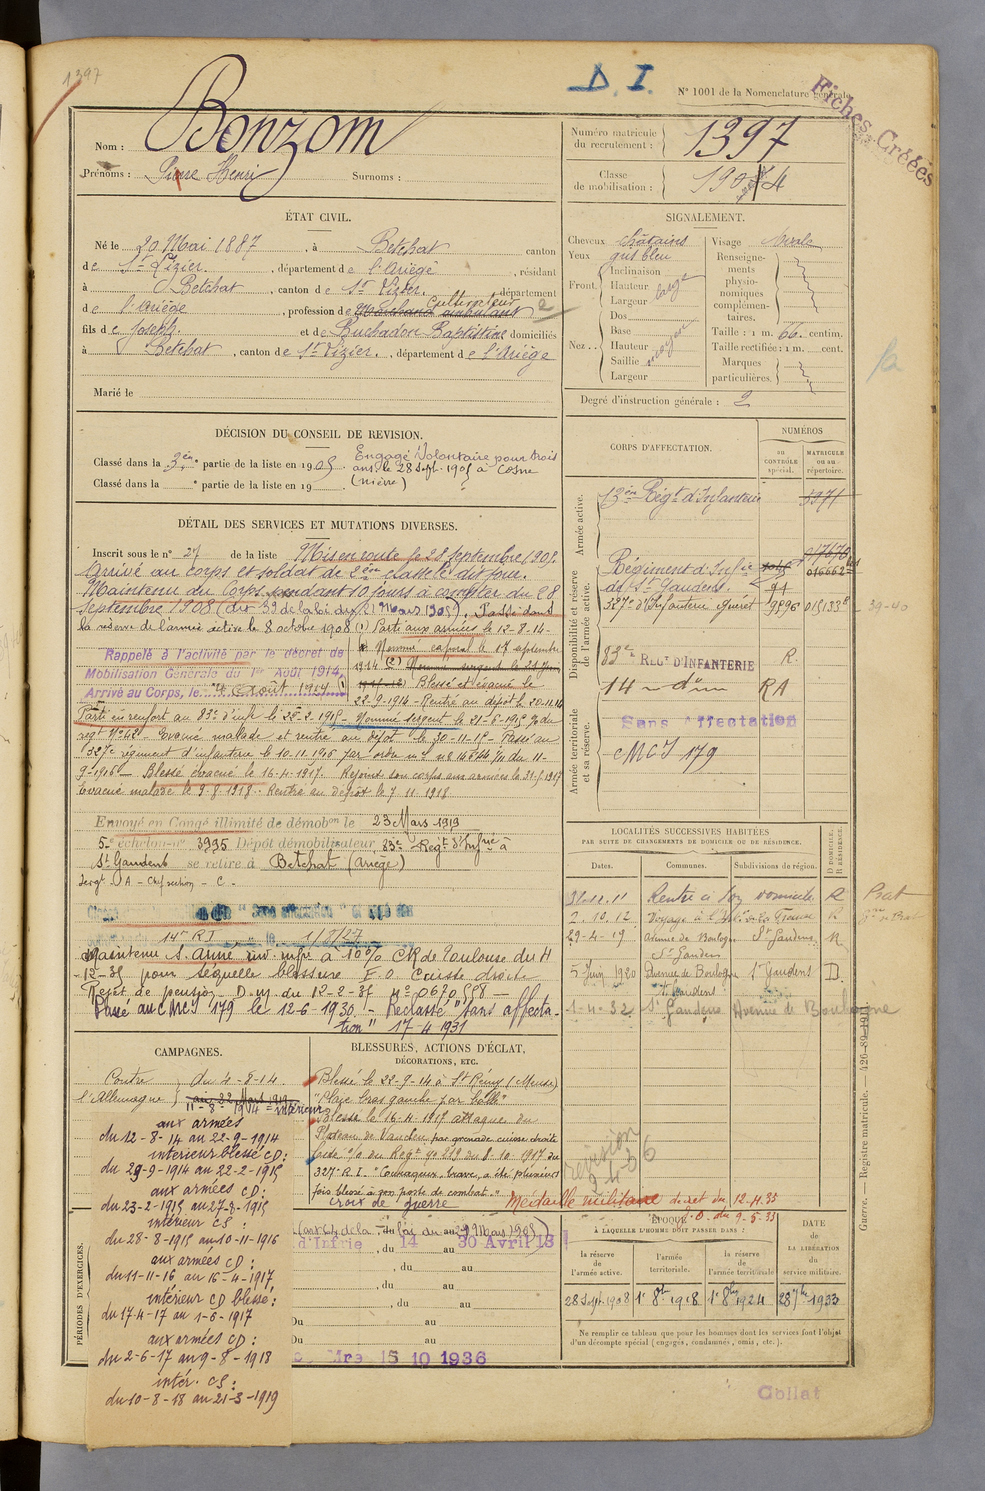 1397
D. I.
N° 1001 de la Nomenclature générale.
Fiches Créées
Nom : Bonzom
Prénoms : Pierre Henri Surnoms :
Numéro matricule du recrutement : 1397
Classe de mobilisation : 1904
ÉTAT CIVIL.
Né le 20 Mai 1887, à Betchat canton
de St Lizier, département de l'Ariège, résidant
à Betchat, canton de St Lizier, département
de l'Ariège, profession de Marchand ambulant Cultivateur 2
fils de Joseph et de Barbadou Baptistine domiciliés
à Betchat, canton de St Lizier, département de l'Ariège
Marié le
SIGNALEMENT.
Cheveux châtains
Yeux gris bleu
Front. Inclinaison
Hauteur
Largeur large
Nez. Dos
Base
Hauteur
Saillie moyen
Largeur
Visage ovale
Renseignements physionomiques complémentaires.
Taille : 1 m. 66 centim.
Taille rectifiée : 1 m. cent.
Marques particulières.
Degré d'instruction générale : 2
DÉCISION DU CONSEIL DE REVISION.
Classé dans la 3e partie de la liste en 1905. Engagé Volontaire pour trois
ans le 28 Sept. 1905 à Cosne
Classé dans la ° partie de la liste en 19 (nièvre)
DÉTAIL DES SERVICES ET MUTATIONS DIVERSES.
Inscrit sous le n° 27 de la liste Mis en route le 28 Septembre 1905.
Arrivé au corps et soldat de 2ème classe le dit jour.
Maintenu du Corps pendant 10 jours à compter du 28
Septembre 1908 (art 39 de la loi du 21 Mars 1905). Passé dans
la réserve de l'armée active le 8 octobre 1908 (1) Parti aux armées le 12-8-14.
Rappelé à l'activité par le décret de
Mobilisation Générale du 1er Août 1914.
Arrivé au Corps, le 4 Août 1914 (1)
Nommé caporal le 17 septembre
1914 (2) Nommé sergent le 21 Juin
Blessé et évacué le
22-9-1914 - Rentré au dépôt le 20.11.14
Parti en renfort au 83e d'infie le 23-2-1915 - Nommé sergent le 21-6-1915
regt N° 42. Evacué malade et rentré au dépôt le 30-11-15 - Passé au
327e régiment d'infanterie le 10.11.1916 par ordre n° 14844 du 11-
9-1916 - Blessé évacué le 16-4-1917. Rejoint son corps aux armées le 31-5-1917
Evacué malade le 9-8-1918. Rentré au Dépôt le 7 11 1918
Envoyé en Congé illimité de démobon le 23 Mars 1919
5e échelon n° 3995 Dépôt démobilisateur 83e Regt d'Infrie à
St Gaudens se retire à Betchat (Ariège)
Sergt A - Chef section - C -
14e RI le 1/5/27
Maintenu S. Armé inf à 10% CR de Toulouse du 4
-12-35 pour séquelle blessure E.O. Cuisse droite
Rejet de pension D.M. du 12-2-35 n° 0670558 -
Passé au C M C J 179 le 12-6-1930 - Reclassé "Sans affecta-
tion" 17-4 1931
CORPS D'AFFECTATION.
NUMÉROS
au CONTRÔLE spécial.
MATRICULE ou au répertoire.
Armée active.
13ème Régt d'Infanterie 3971
Disponibilité et réserve de l'armée active.
Régiment d'Infie
de St Gaudens. 016662
327e d'Infanterie Guéret 9596 015133
39-40
83e REGT D'INFANTERIE R.
14e d° RA
Armée territoriale et sa réserve.
Sans Affectation
CMCJ 179
LOCALITÉS SUCCESSIVES HABITÉES
PAR SUITE DE CHANGEMENTS DE DOMICILE OU DE RÉSIDENCE.
Dates. Communes. Subdivisions de région. D DOMICILE. R RÉSIDENCE.
Rentré à son domicile R Prat
2.10.12 Voyage à R
29-4-19 avenue de Boulogne St Gaudens R
St Gaudens
5 Juin 1920 Avenue de Boulogne St Gaudens D
St Gaudens
1-4-32 St Gaudens Avenue de Boulogne
CAMPAGNES.
Contre l'Allemagne du 4-8-14
au 22 Mars 1919
11-8-1914 = intérieur
aux armées
du 12-8-14 au 22-9-1914
intérieur blessé CD :
du 29-9-1914 au 22-2-1915
aux armées CD :
du 23-2-1915 au 27-8-1915
intérieur CS :
du 28-8-1915 au 10-11-1916
aux armées CD :
du 11-11-16 au 16-4-1917
intérieur CD blessé :
du 17-4-17 au 1-6-1917
aux armées CD :
du 2-6-17 au 9-8-1918
intér. CS :
du 10-8-18 au 21-3-1919
BLESSURES, ACTIONS D'ÉCLAT,
DÉCORATIONS, ETC.
Blessé le 22-9-14 à St Rémy (Meuse)
"Plaie bras gauche par balle"
Blessé le 16-4-1917 attaque du
Plateau de Vauclerc par grenade cuisse droite
Cité o/o du Regt N° 219 du 8-10-1917 du
327e R.I. "Courageux, brave, a été plusieurs
fois blessé à son poste de combat."
Croix de guerre
Médaille militaire décret du 12.4.35
J.O. du 9-5-35
revision
PÉRIODES D'EXERCICES.
d'Infrie, du 14 au 30 Avril 13
, du au
, du au
, du au
Du au
Du au
Mre 15 10 1936
ÉPOQUE
À LAQUELLE L'HOMME DOIT PASSER DANS :
la réserve de l'armée active. l'armée territoriale. la réserve de l'armée territoriale.
DATE DE LA LIBÉRATION du service militaire.
28 Sept. 1908 1er 8bre 1918 1er 8bre 1924 28 7bre 1933
Ne remplir ce tableau que pour les hommes dont les services font l'objet
d'un décompte spécial (engagés, condamnés, omis, etc.).
Collat
Guerre. — Registre matricule. — 426-89-1911.